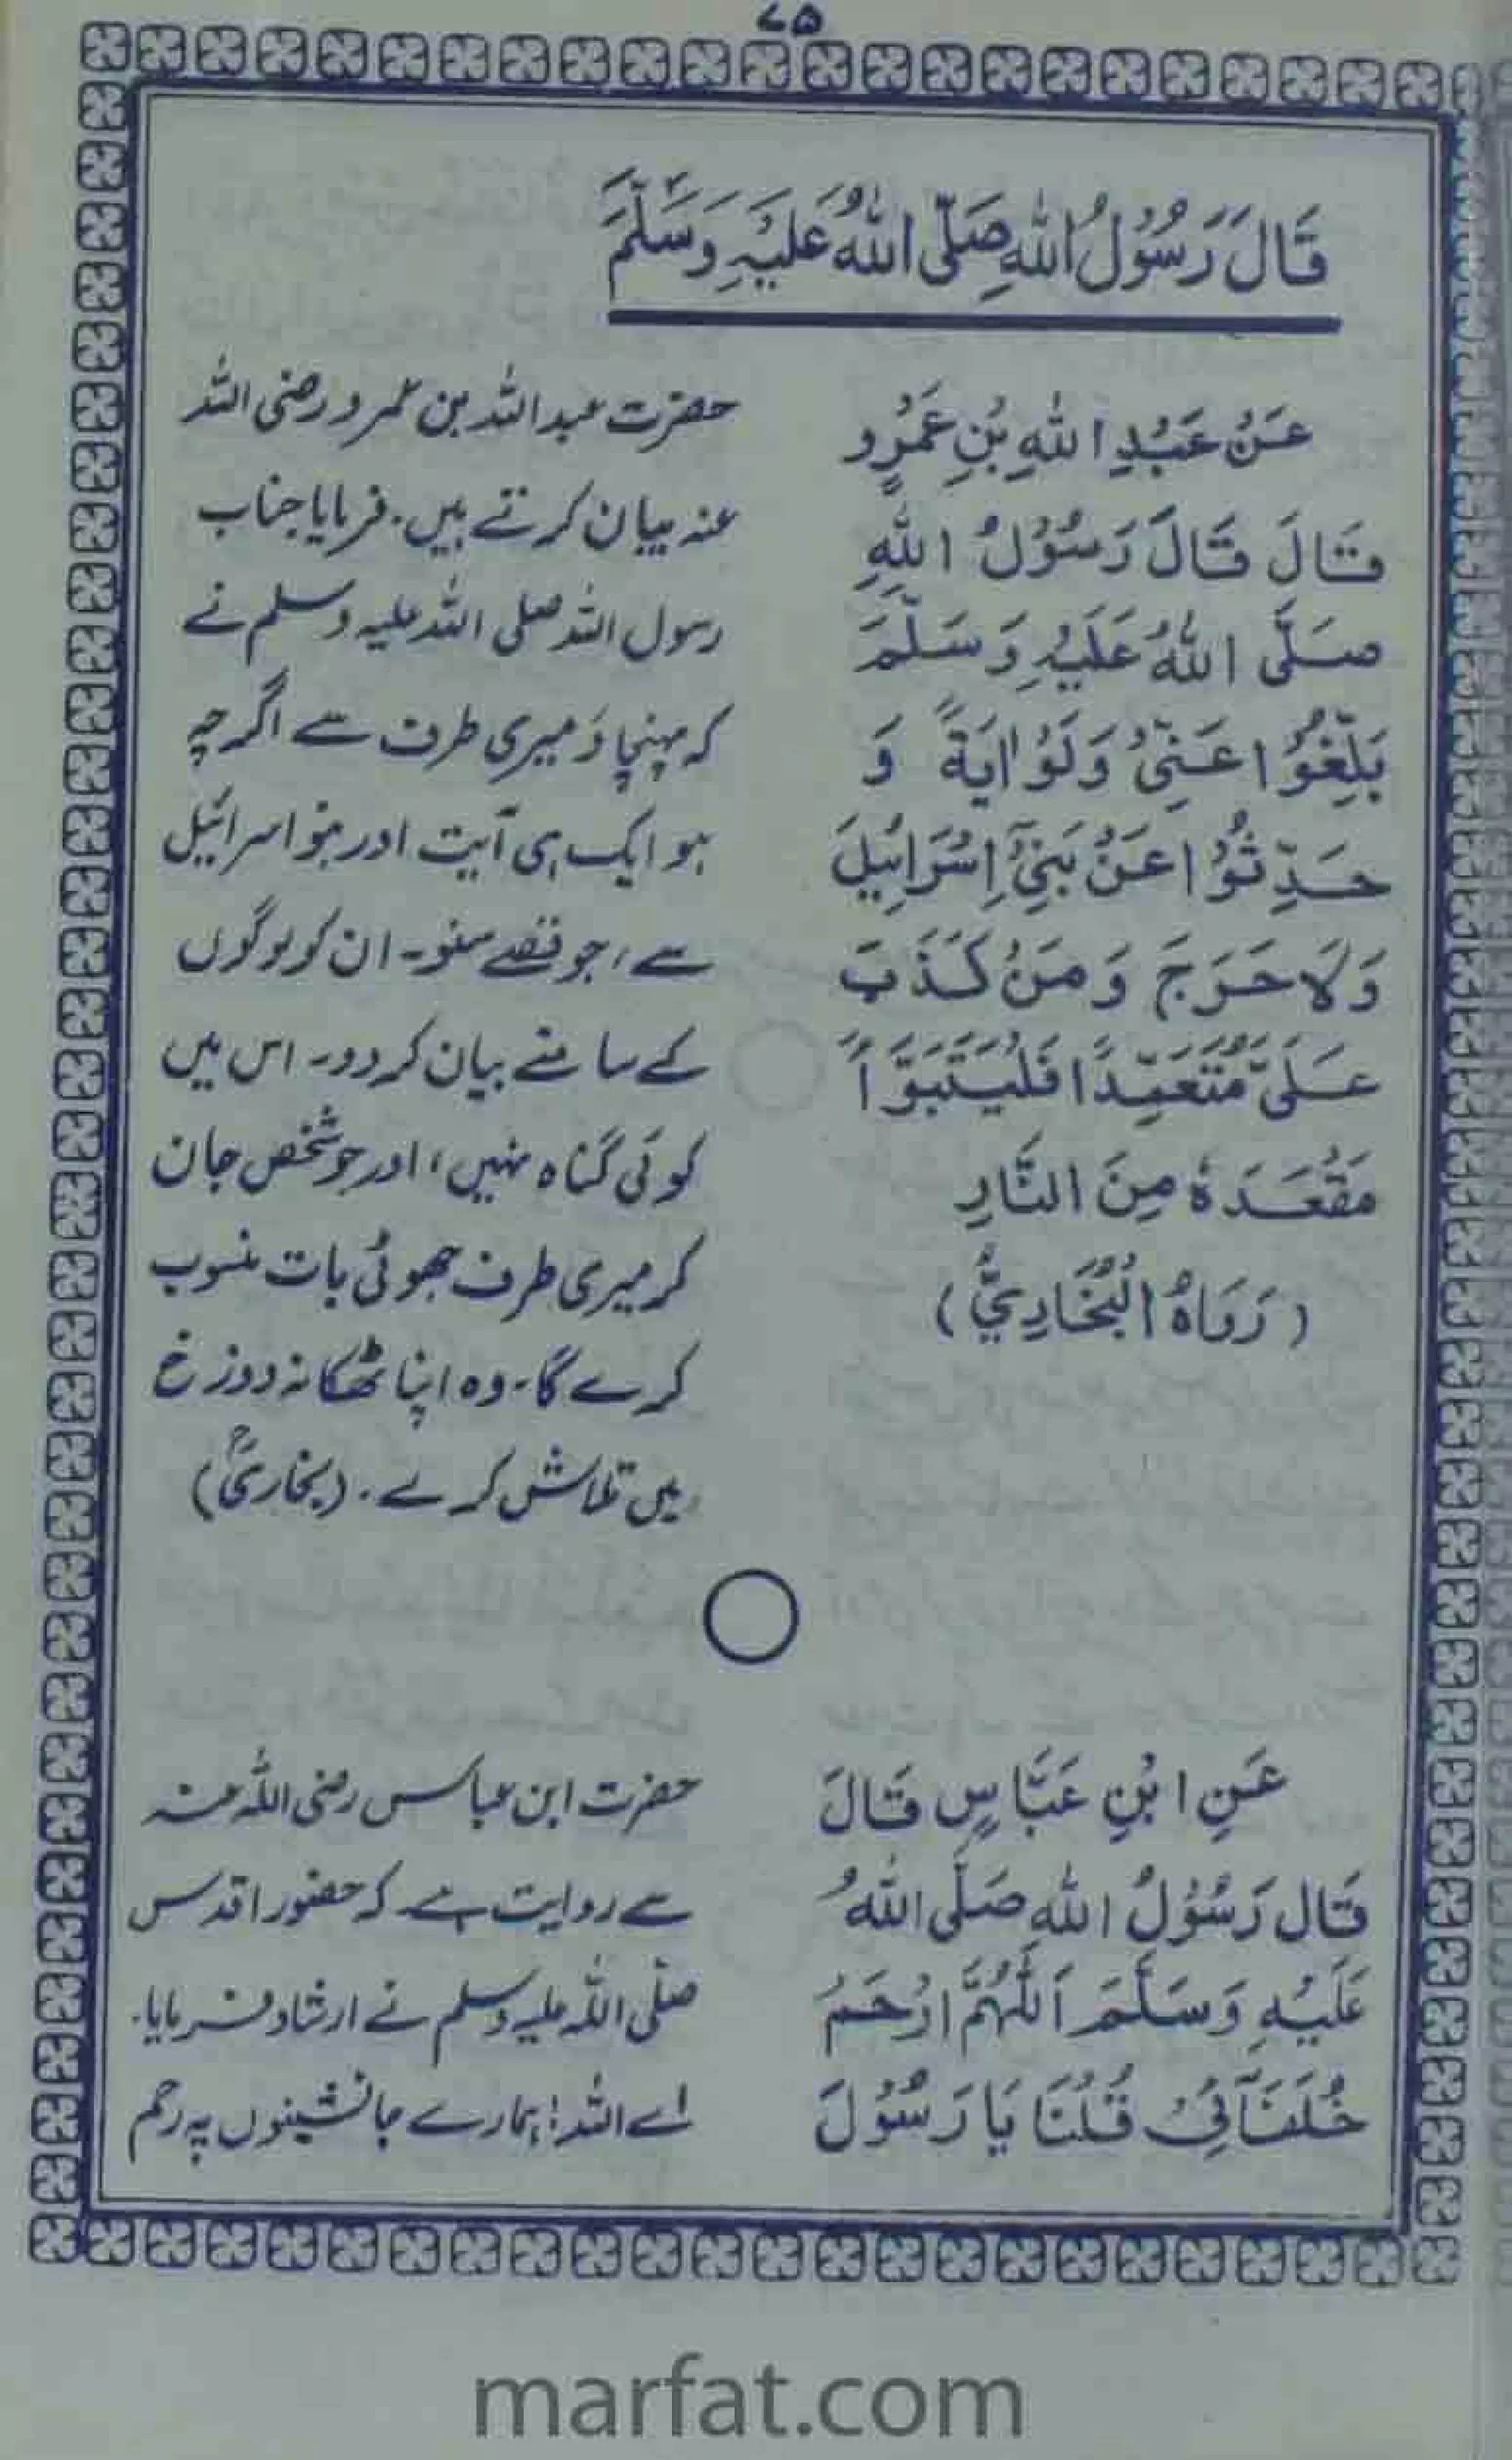 ۷۵
قَالَ رَسُوْلُ اللهِ صَلَّی اللهُ عَلَیْہِ وَسَلَّمَ
عَنْ عَبْدِ اللهِ بْنِ عَمْرٍو
قَالَ قَالَ رَسُوْلُ اللهِ
صَلَّی اللهُ عَلَیْہِ وَسَلَّمَ
بَلِّغُوْا عَنِّیْ وَلَوْ اٰیَةً وَ
حَدِّثُوْا عَنْ بَنِیْٓ اِسْرَائِیلَ
وَلَا حَرَجَ وَمَنْ کَذَبَ
عَلَیَّ مُتَعَمِّدًا فَلْیَتَبَوَّأْ
مَقْعَدَہٗ مِنَ النَّارِ
(رَوَاہُ الْبُخَارِیُّ)
حضرت عبد اللہ بن عمرو رضی اللہ
عنہ بیان کرتے ہیں۔ فرمایا جناب
رسول اللہ صلی اللہ علیہ وسلم نے
کہ پہنچاؤ میری طرف سے اگرچہ
ہو ایک ہی آیت اور بنو اسرائیل
سے، جو قصّے سنو۔ ان کو لوگوں
کے سامنے بیان کر دو۔ اس میں
کوئی گناہ نہیں، اور جو شخص جان
کر میری طرف جھوٹی بات منسوب
کرے گا۔ وہ اپنا ٹھکانہ دوزخ
میں تلاش کرے۔ (بخاریؒ)
عَنِ ابْنِ عَبَّاسٍ قَالَ
قَالَ رَسُوْلُ اللهِ صَلَّی اللهُ
عَلَیْہِ وَسَلَّمَ اَللّٰھُمَّ ارْحَمْ
خُلَفَآئِیْ قُلْنَا یَا رَسُوْلَ
حضرت ابن عباس رضی اللہ عنہ
سے روایت ہے کہ حضور اقدس
صلّی اللہ علیہ وسلم نے ارشاد فرمایا۔
اے اللہ! ہمارے جانشینوں پہ رحم
marfat.com